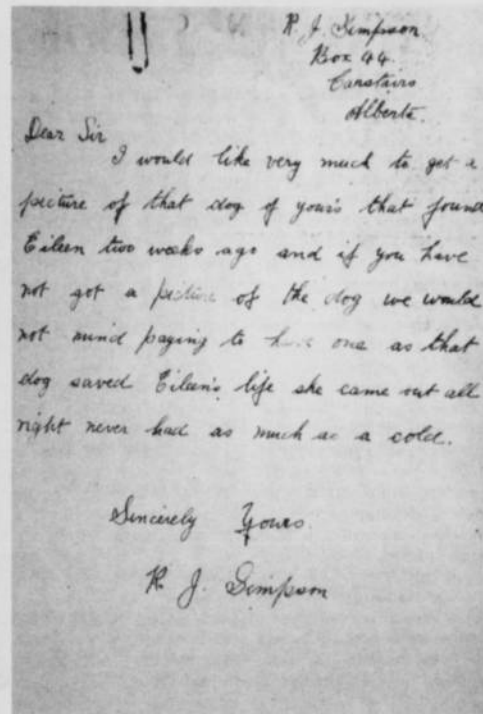 R. J. Simpson
Box 44.
Carstairs
Alberta.
Dear Sir
I would like very much to get a
picture of that dog of yours that found
Eileen two weeks ago and if you have
not got a picture of the dog we would
not mind paying to have one as that
dog saved Eileen's life she came out all
right never had as much as a cold.
Sincerely Yours.
R. J. Simpson